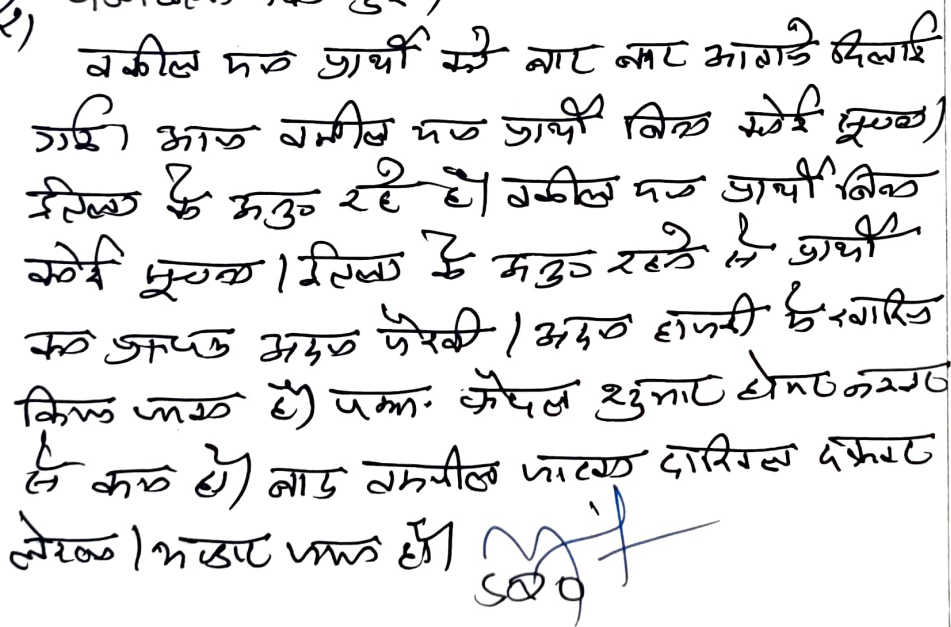 २)
वकील पक्ष प्रार्थी को बार बार आवाजे दिलाई
गई। आज वकील पक्ष प्रार्थी बिना कोई सूचना/
ईतला के अनु० रहे है। वकील पक्ष प्रार्थी बिना
कोई सूचना/ईतला के अनु० रहने से प्रार्थी
का प्रा०पत्र अदम पैरवी/अदम हाजरी मे खारिज
किया जाता है। पत्रा० फैसल शुमार होकर नम्बर
से कम हो। बाद तकमील पत्रावली दाखिल दफ्तर
लेखा/भण्डार जमा हो।
SDO